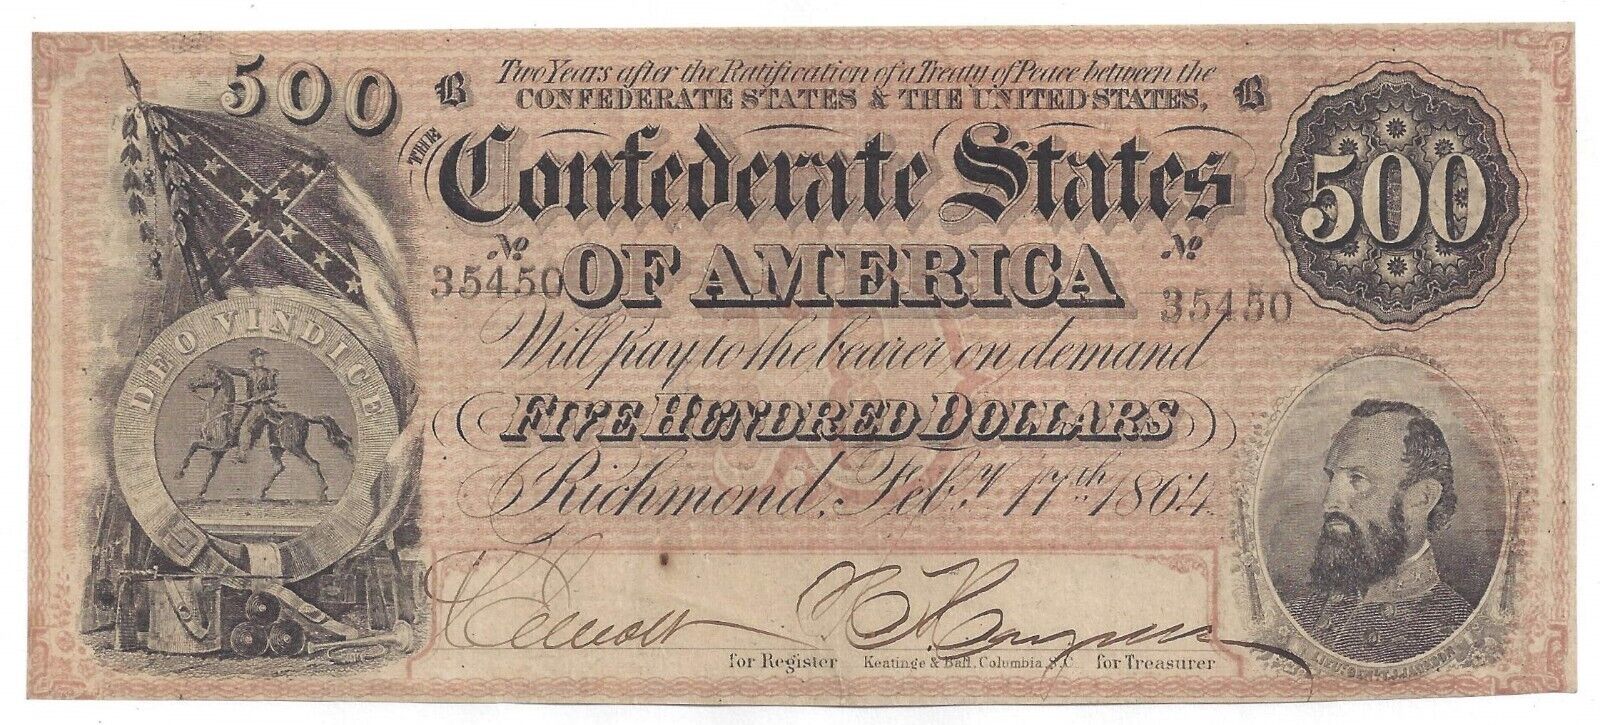 500
B
Two Years after the Ratification of a Treaty of Peace between the
CONFEDERATE STATES & THE UNITED STATES,
B
THE
Confederate States
500
No
35450
OF AMERICA
No
35450
DEO VINDICE
Will pay to the bearer on demand
FIVE HUNDRED DOLLARS
Richmond, Feby 17th 1864.
for Register
Keatinge & Ball, Columbia, S.C.
for Treasurer